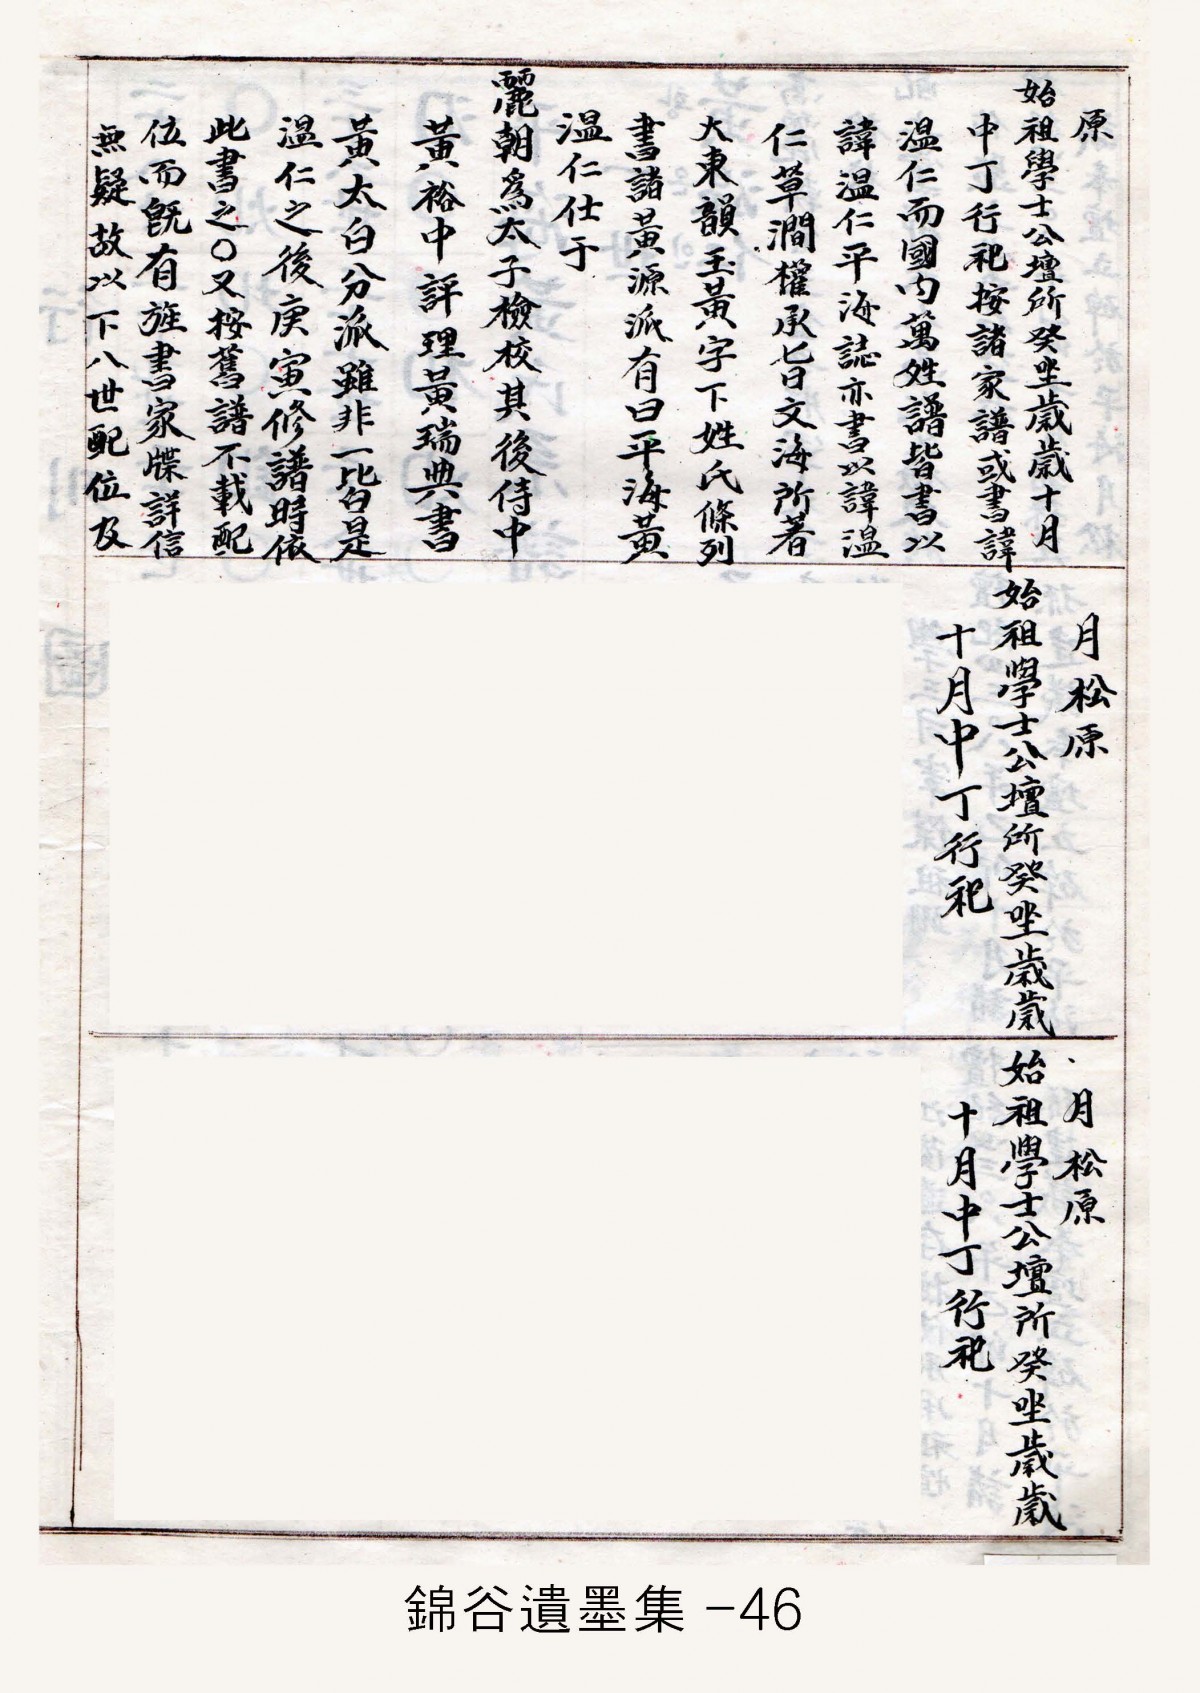 原
始祖學士公壇所癸坐歲歲十月
中丁行祀按諸家譜或書諱
溫仁而國內萬姓譜皆書以
諱溫仁平海誌亦書以諱溫
仁草澗權承旨文海所著
大東韻玉黃字下姓氏條列
書諸黃源派有曰平海黃
溫仁仕于
麗朝爲太子檢校其後侍中
黃裕中評理黃瑞典書
黃太白分派雖非一皆是
溫仁之後庚寅修譜時依
此書之〇又按舊譜不載配
位而旣有旌書家牒詳信
無疑故以下八世配位及
月松原
始祖學士公壇所癸坐歲歲
十月中丁行祀
月松原
始祖學士公壇所癸坐歲歲
十月中丁行祀
錦谷遺墨集 -46